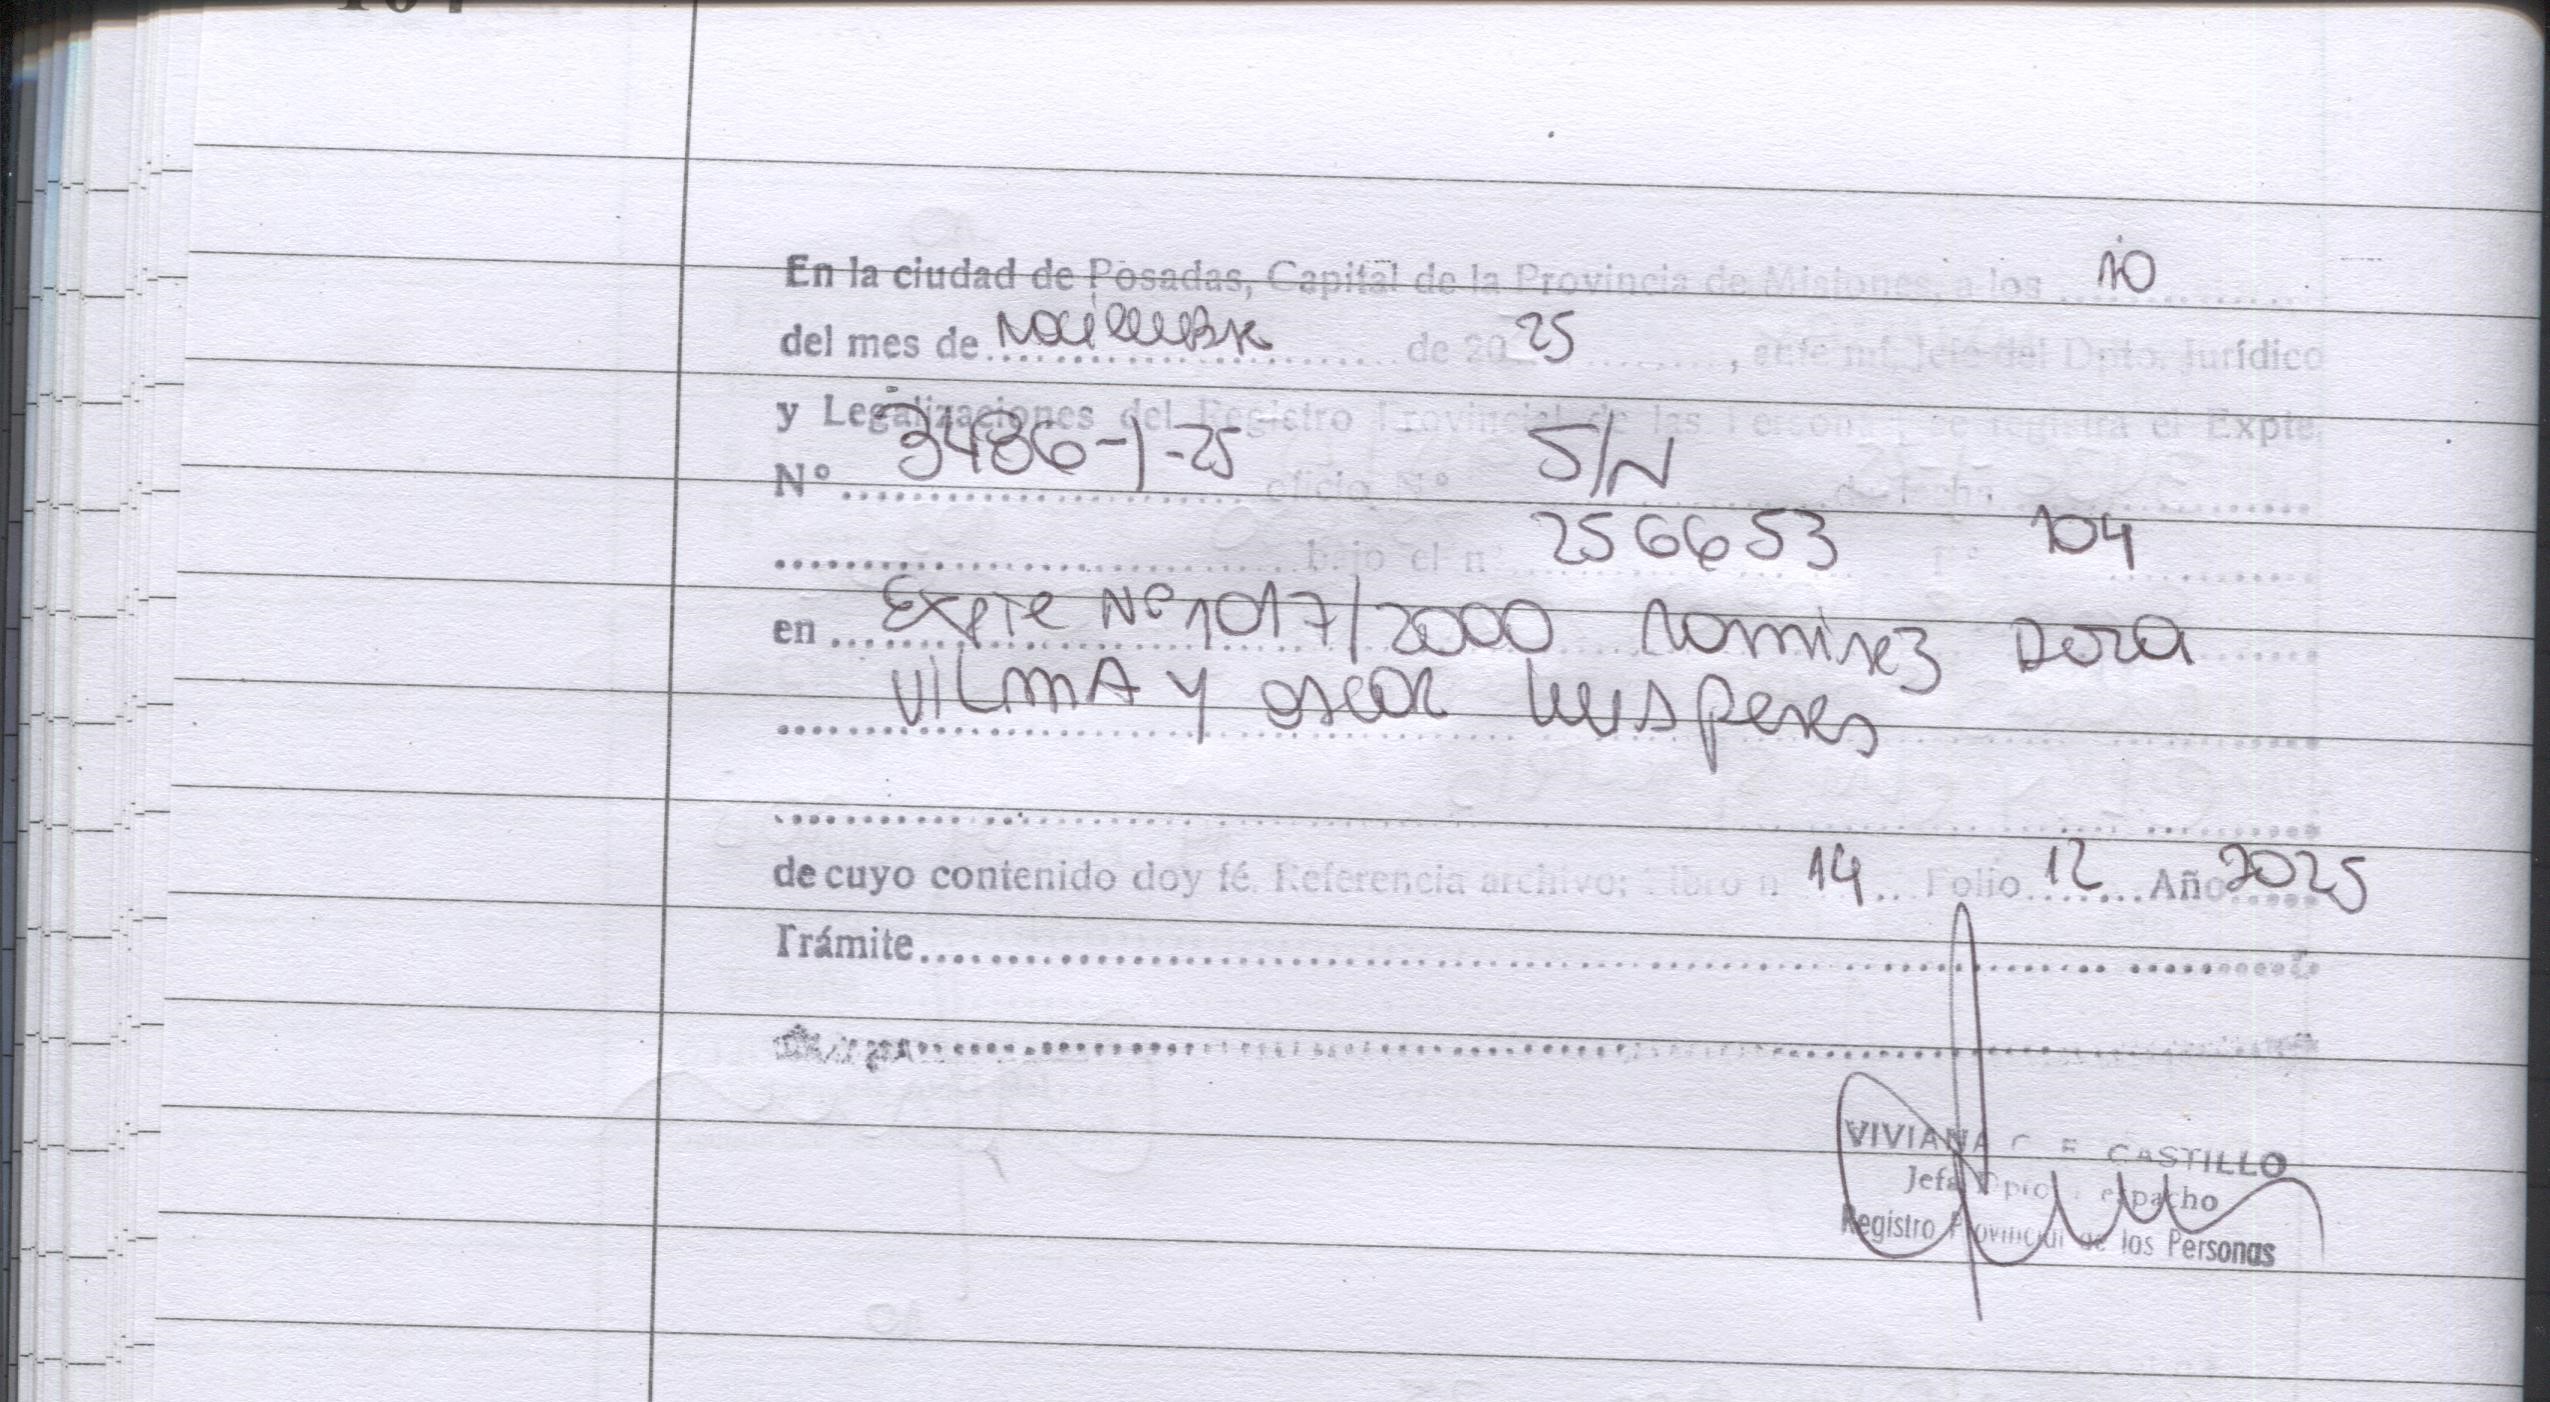 En la ciudad de Posadas, Capital de la Provincia de Misiones, a los 10
del mes de Noviembre de 2025, ante mí, Jefe del Dpto. Jurídico
y Legalizaciones del Registro Provincial de las Personas, se registra el Expte.
Nº 3486-1-25 oficio Nº S/N de fecha
bajo el nº 256653 Fº 104
en Expte Nº 1017/2000 Ramirez Dora
VILMA Y oscar Luis Peres
de cuyo contenido doy fé. Referencia archivo: Libro nº 14 Folio 12 Año 2025
Trámite
VIVIANA C. E. CASTILLO
Jefa Dpto. Despacho
Registro Provincial de las Personas